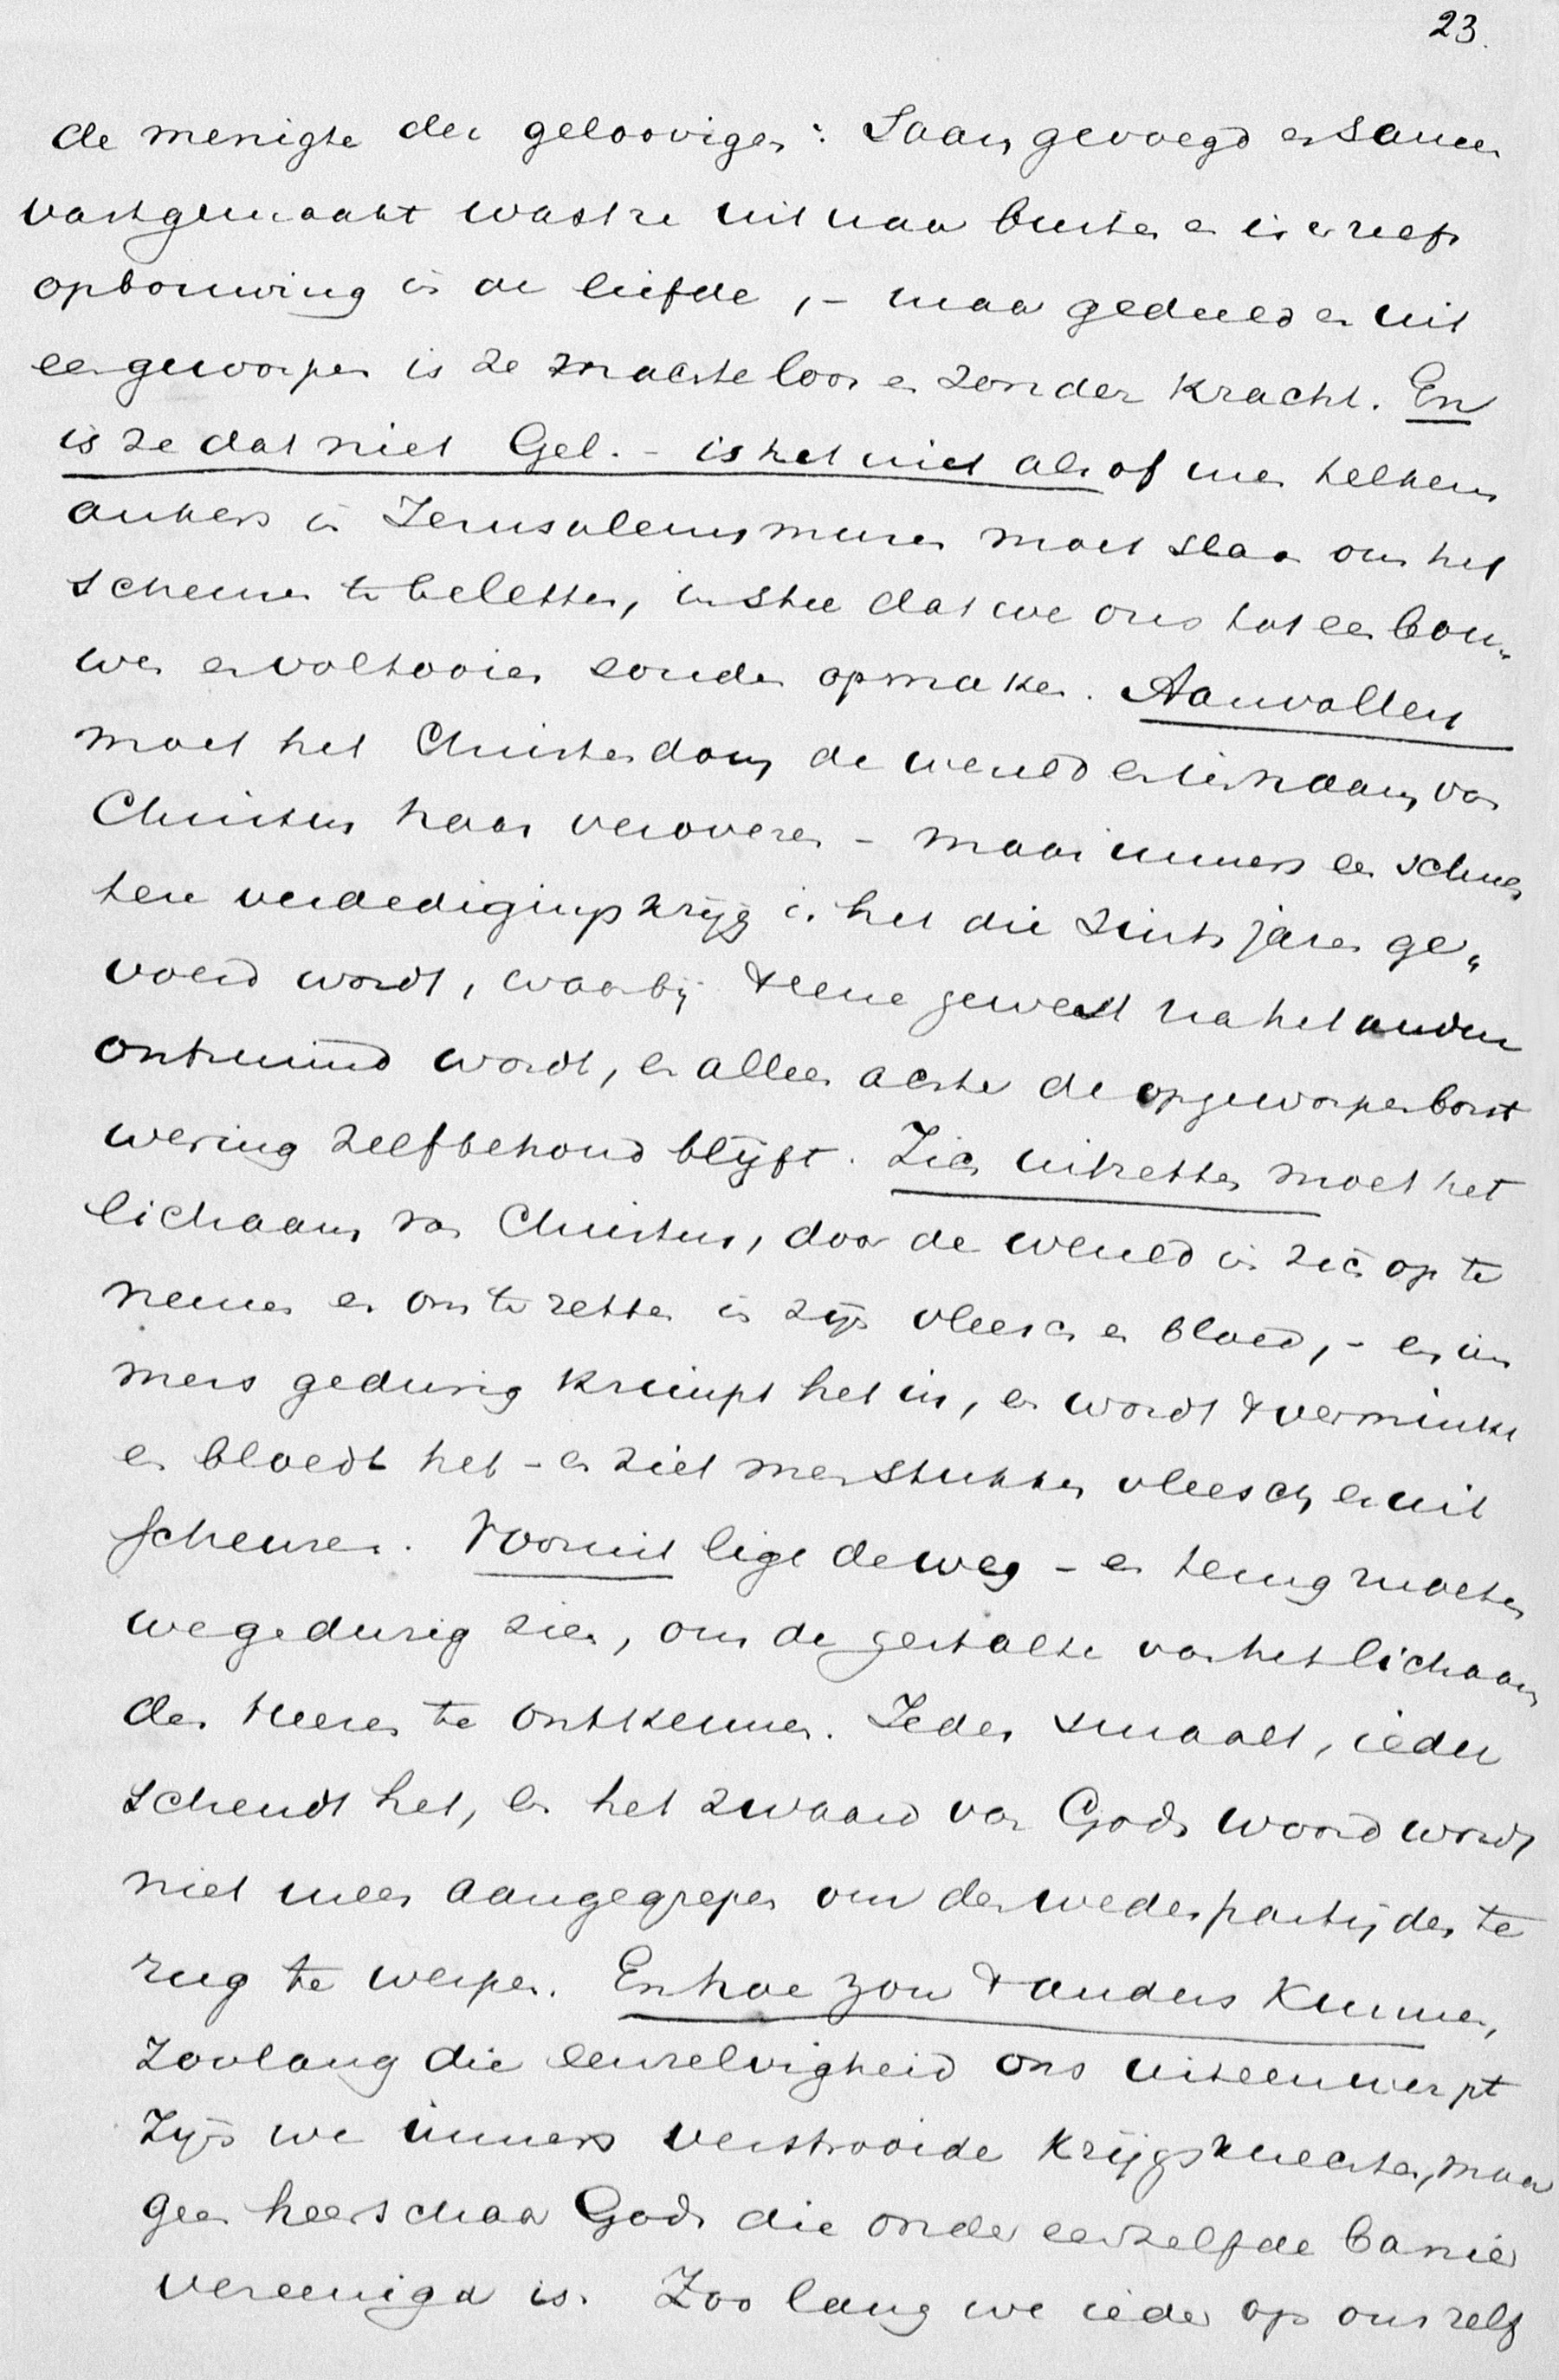 23.
de menigte der geloovigen: Saamgevoegd en samen
vastgemaakt wast ze uit naar buiten en is er zelfs
opbouwing in de liefde, – maar gedeeld en uit
eengeworpen is ze machteloos en zonder kracht. En
is ze dat niet Gel. – is het niet als of men telkens
ankers in Jerusalems muren moet slaan om het
scheuren te beletten, in stee dat we ons tot een bou„
wen en voltooien zouden opmaken. Aanvallen
moet het Christendom de wereld en in naam van
Christus haar veroveren – maar immers een schuch
tere verdedigingskrijg is het die sints jaren ge„
voerd wordt, waarbij t eene gewest na het andere
ontruimd wordt, en alleen achter de opgeworpen borst
wering zelfbehoud blijft. Zich uitzetten moet het
lichaam van Christus, door de wereld in zich op te
nemen en om te zetten in zijn vleesch en bloed, – en im
mers gedurig krimpt het in, en wordt t verminkt
en bloedt het – en ziet men stukken vleesch er uit
scheuren. Vooruit ligt de weg – en terug moeten
we gedurig zien, om de gestalte van het lichaam
des Heeren te ontkennen. Ieder smaalt, ieder
schendt het, en het zwaard van Gods woord wordt
niet meer aangegrepen om den wederpartijder te
rug te werpen. En hoe zou t anders kunnen,
Zoolang die eenzelvigheid ons uiteenwerpt
Zijn we immers verstrooide krijgsknechten, maar
geen heerschaar Gods die onder eenzelfde banier
vereenigd is. Zoo lang we ieder op ons zelf